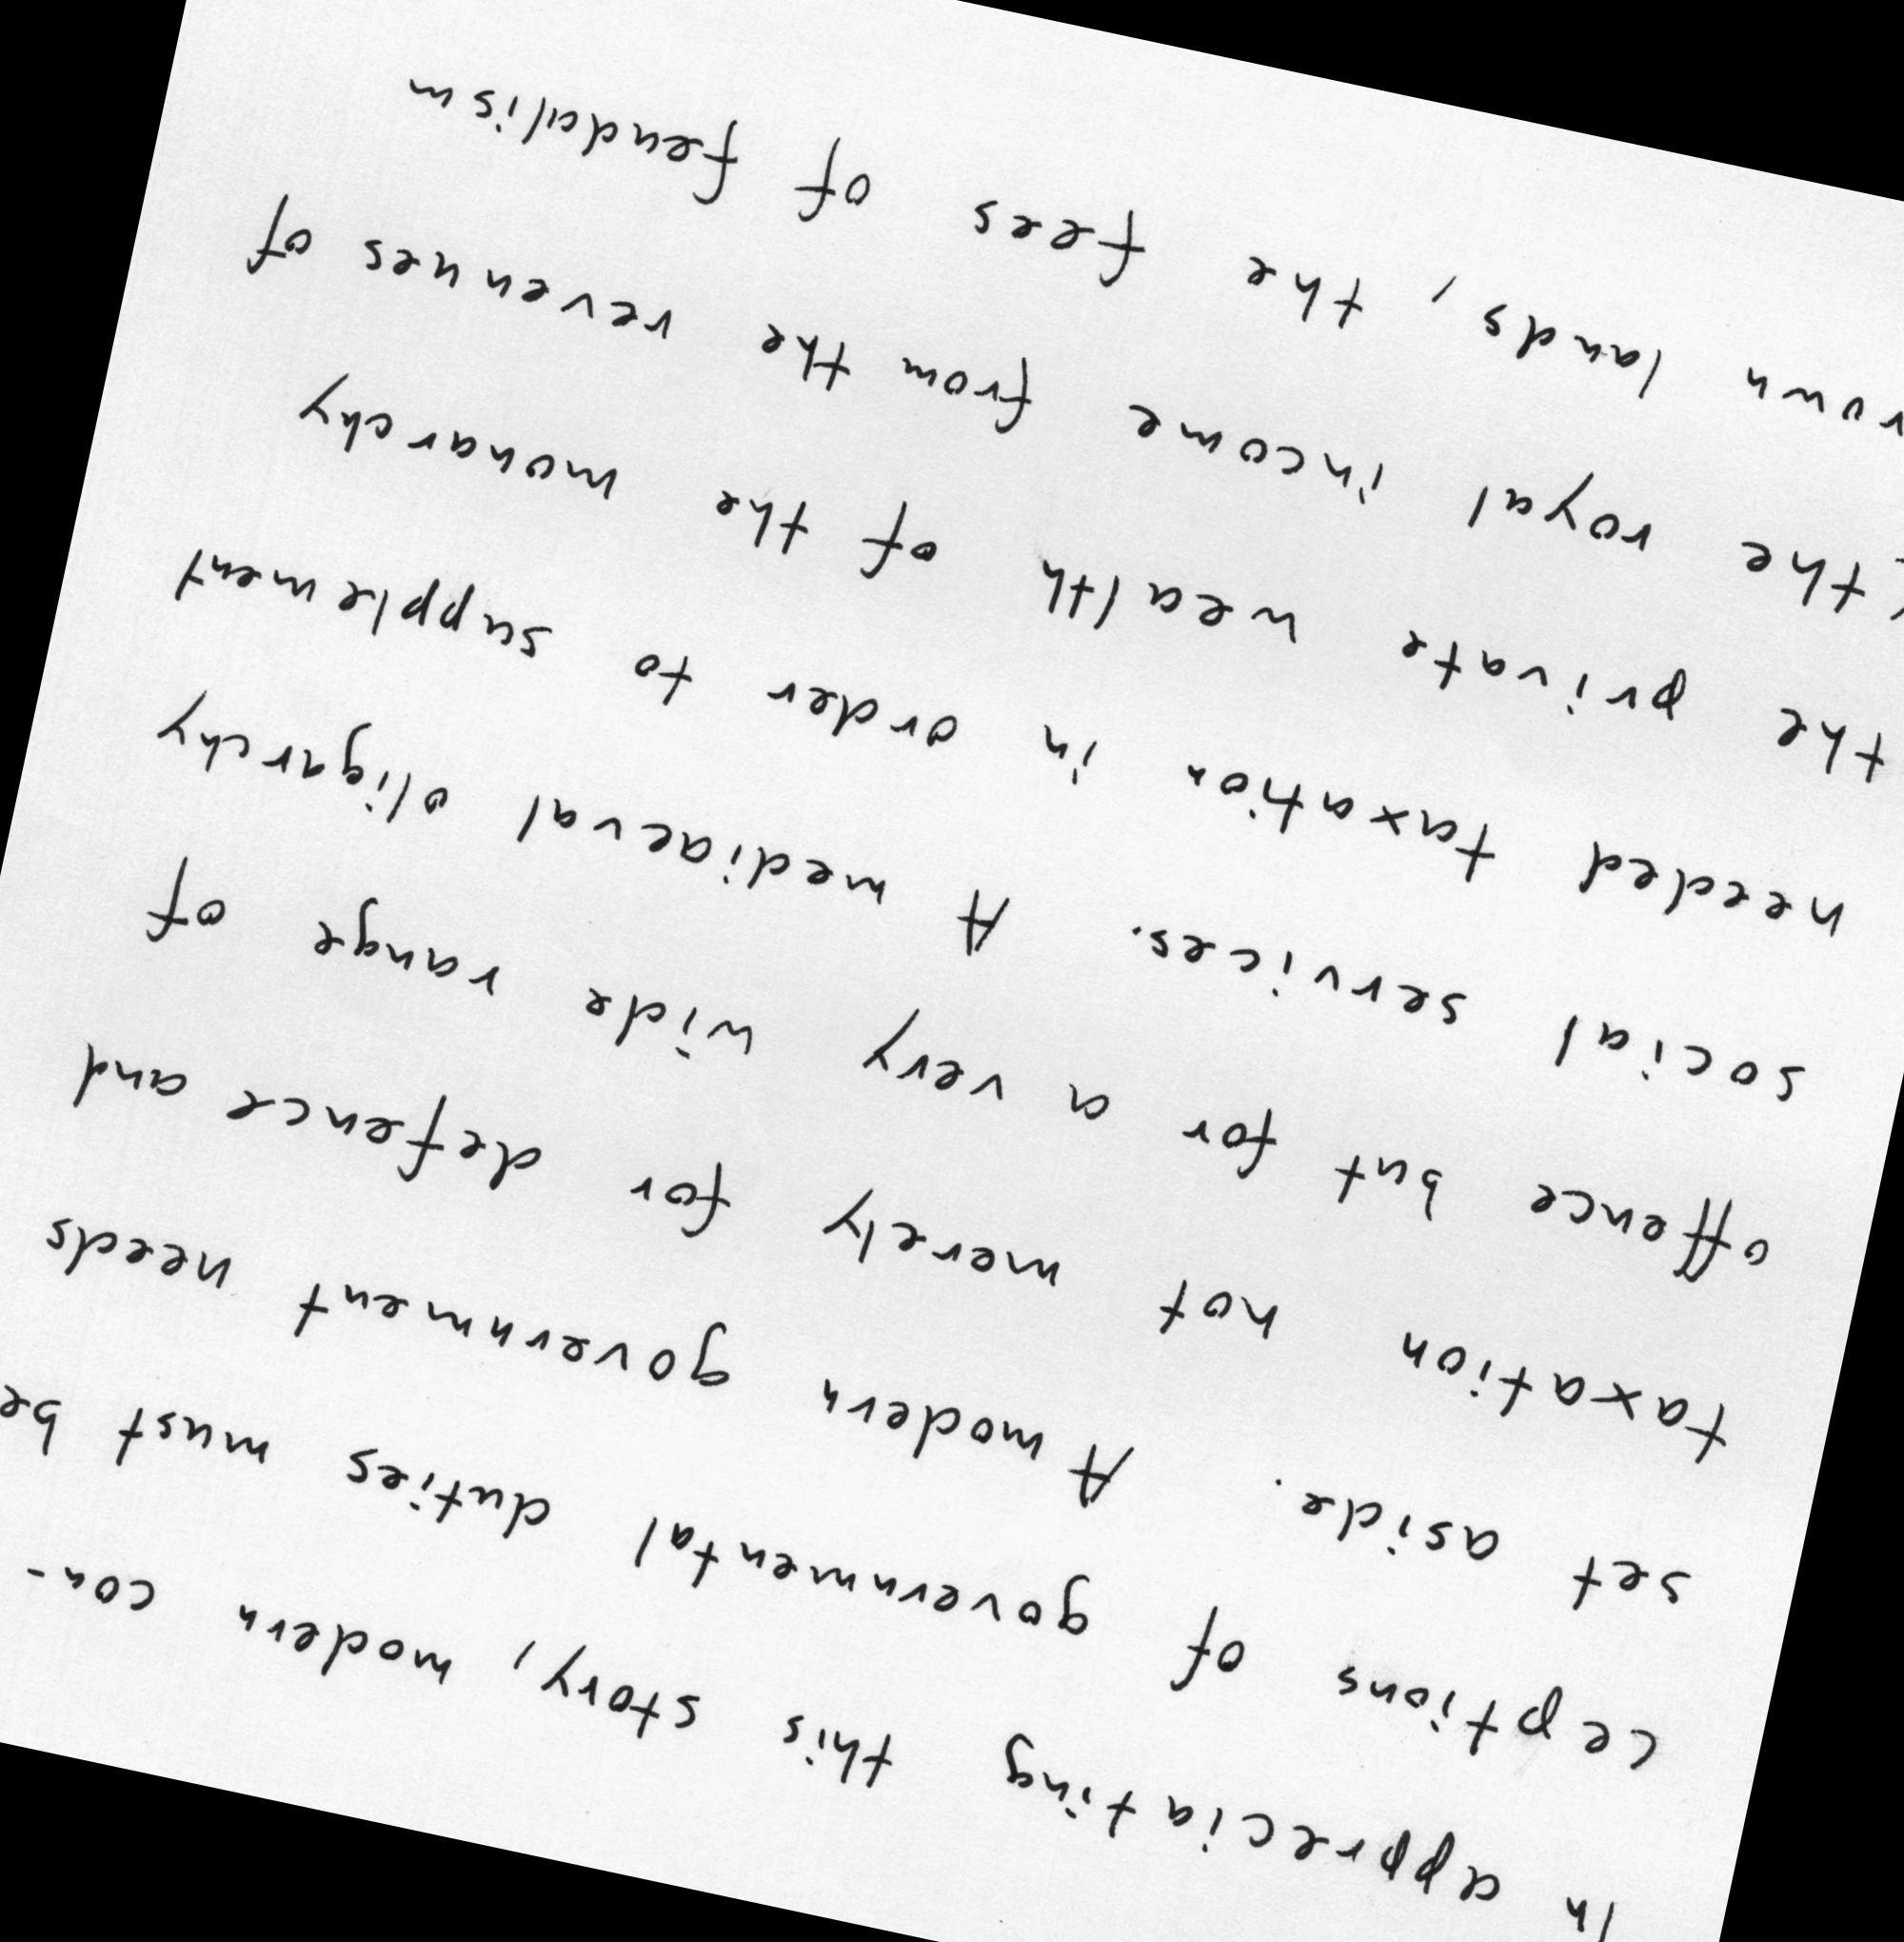 In appreciating this story, modern con-
ceptions of governmental duties must be
set aside. A modern government needs
taxation not merely for defence and
offence but for a very wide range of
social services. A mediaeval oligarchy
needed taxation in order to supplement
the private wealth of the monarchy
the royal income from the revenues of
lands, the fees of feudalism